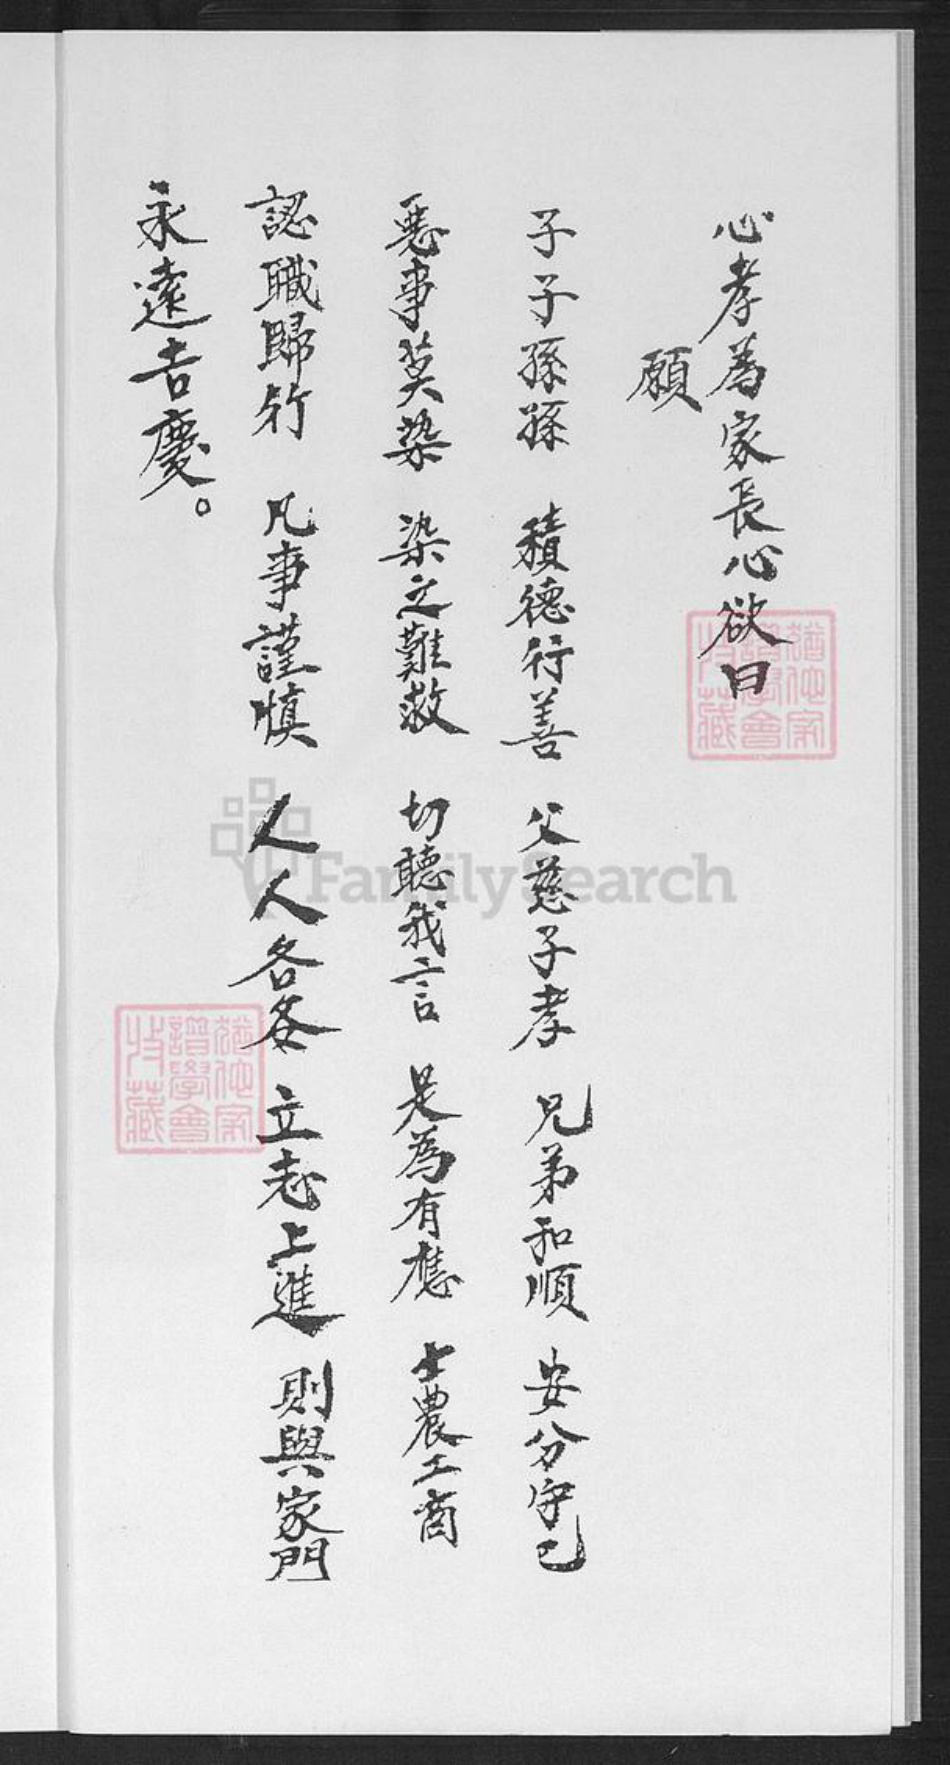 心孝為家長心欲曰
願
子子孫孫 積德行善 父慈子孝 兄弟和順 安分守己
惡事莫染 染之難救 切聽我言 是為有應 士農工商
認職歸行 凡事謹慎 人人各各 立志上進 則與家門
永遠吉慶。
FamilySearch
譜學會
收藏
譜學會
收藏